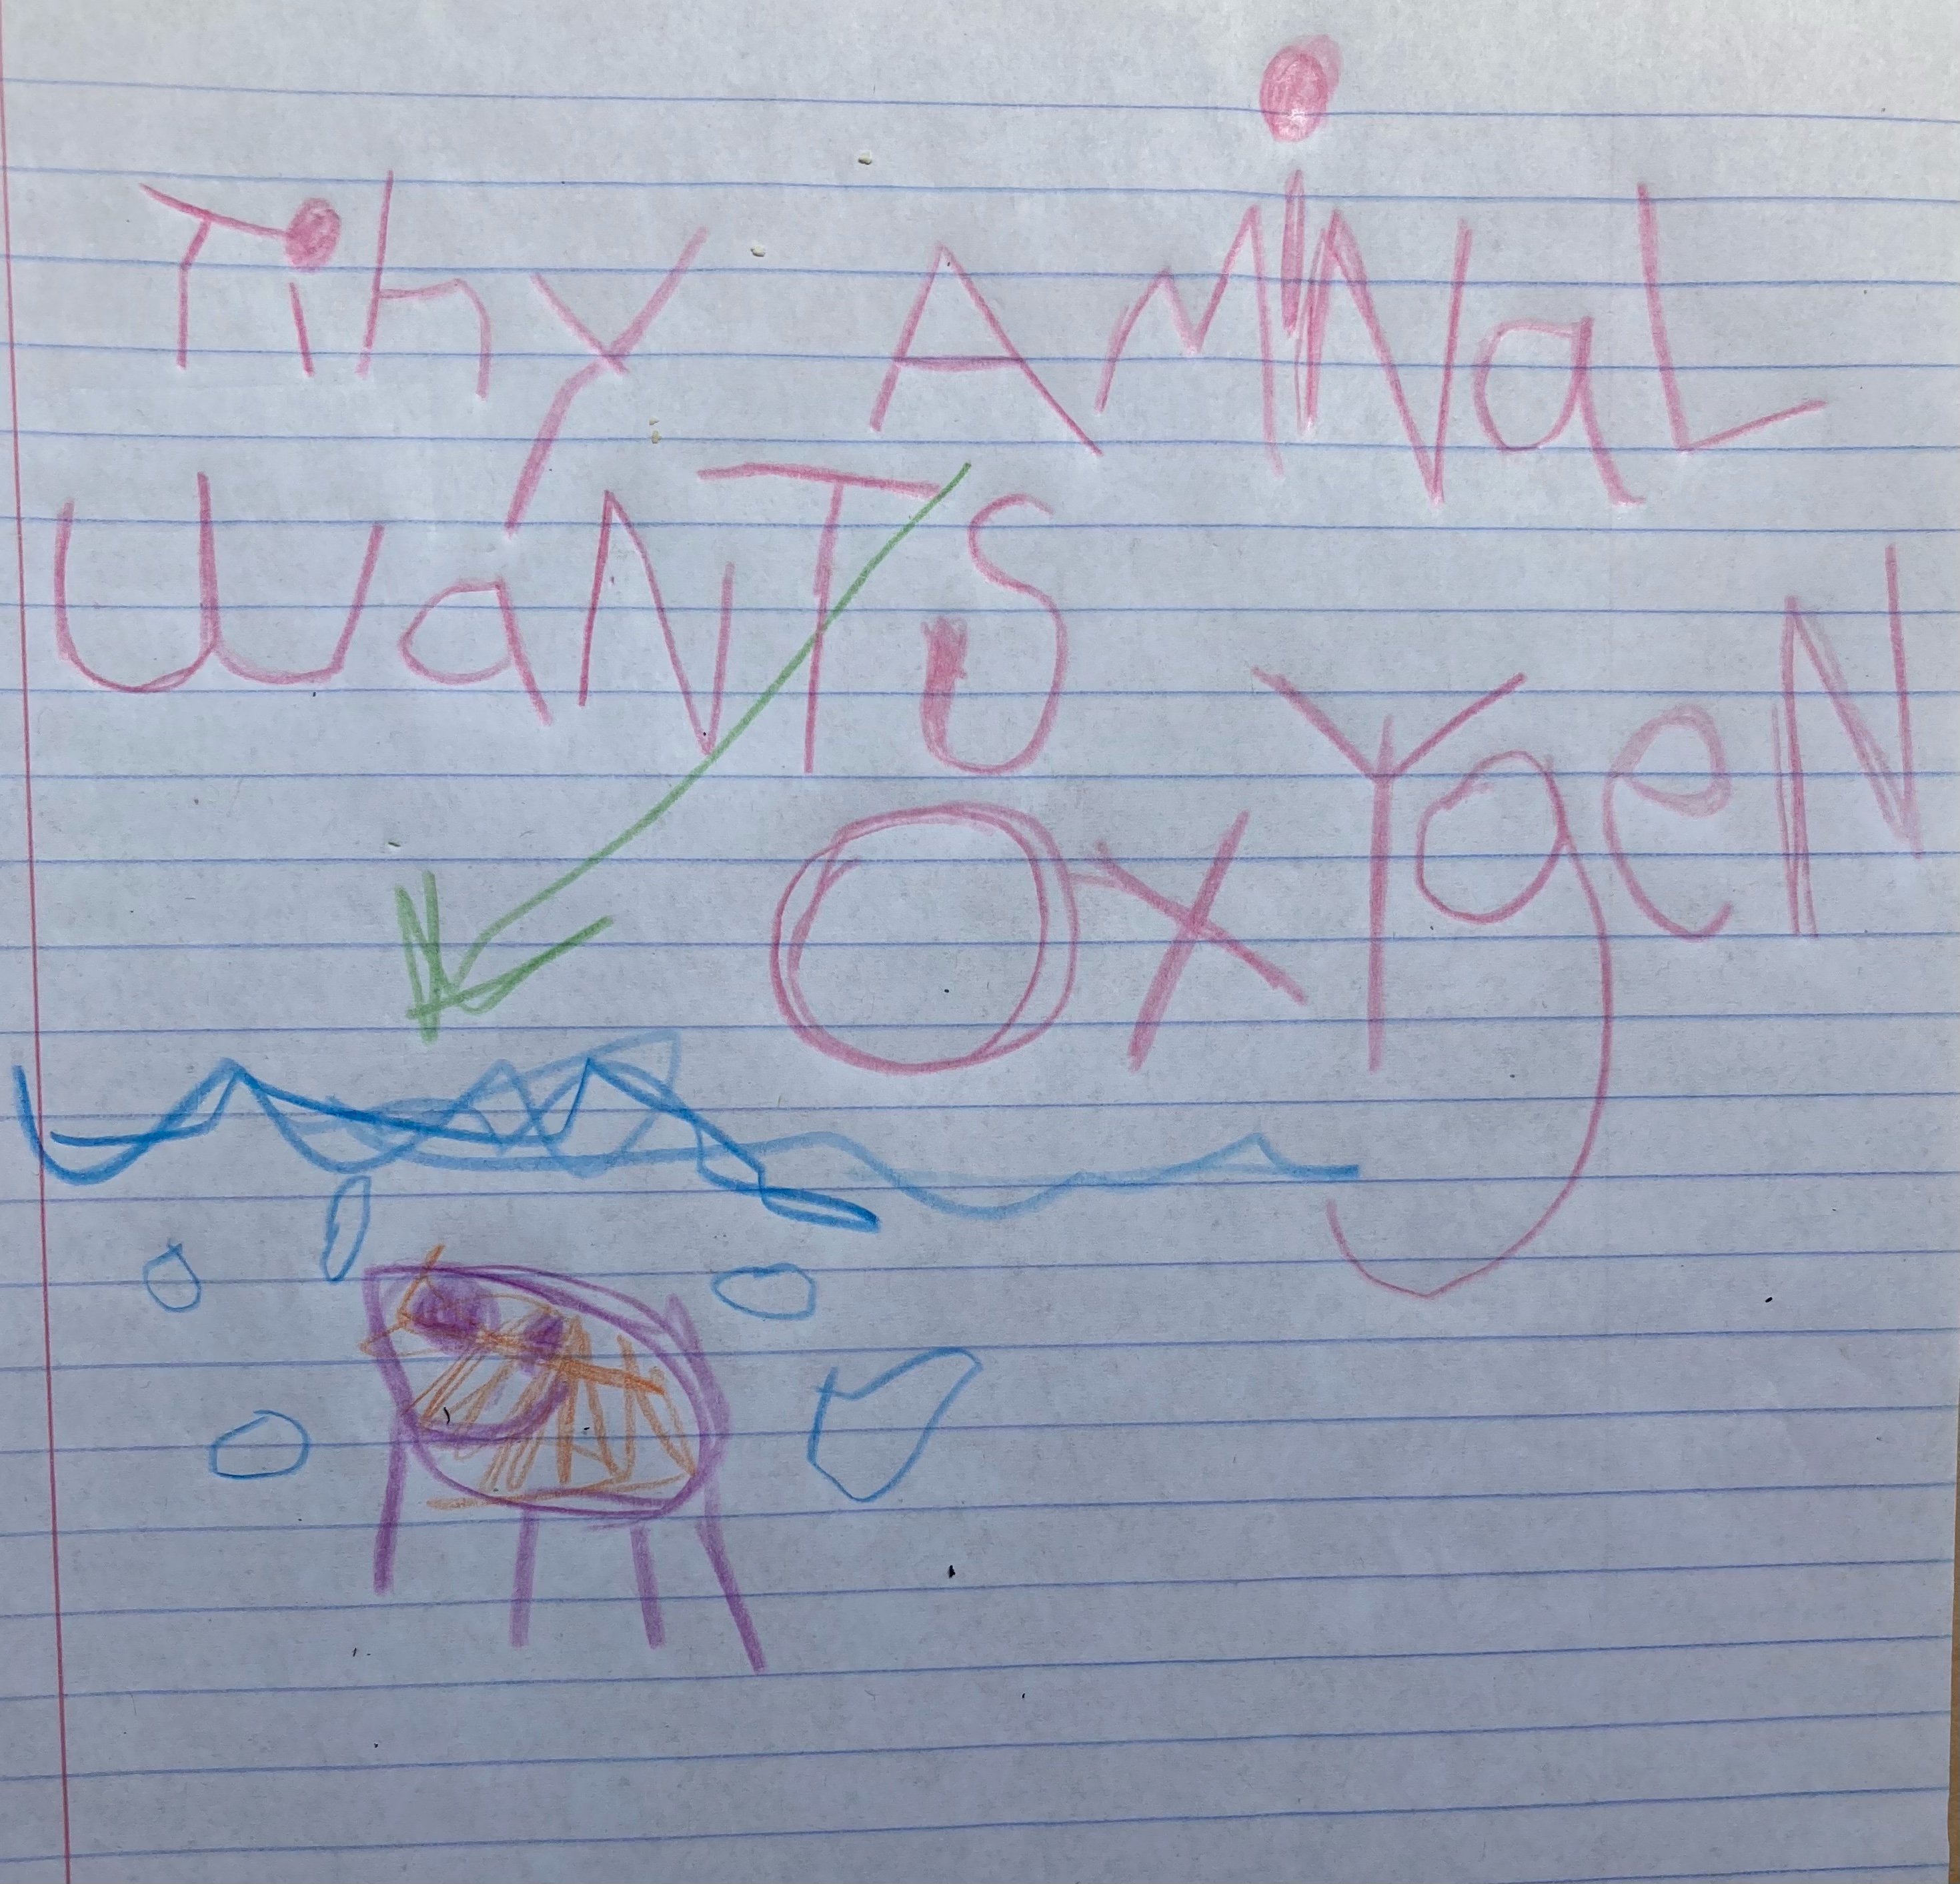 TihY AMiNaL
WaNTS
OXYgeN